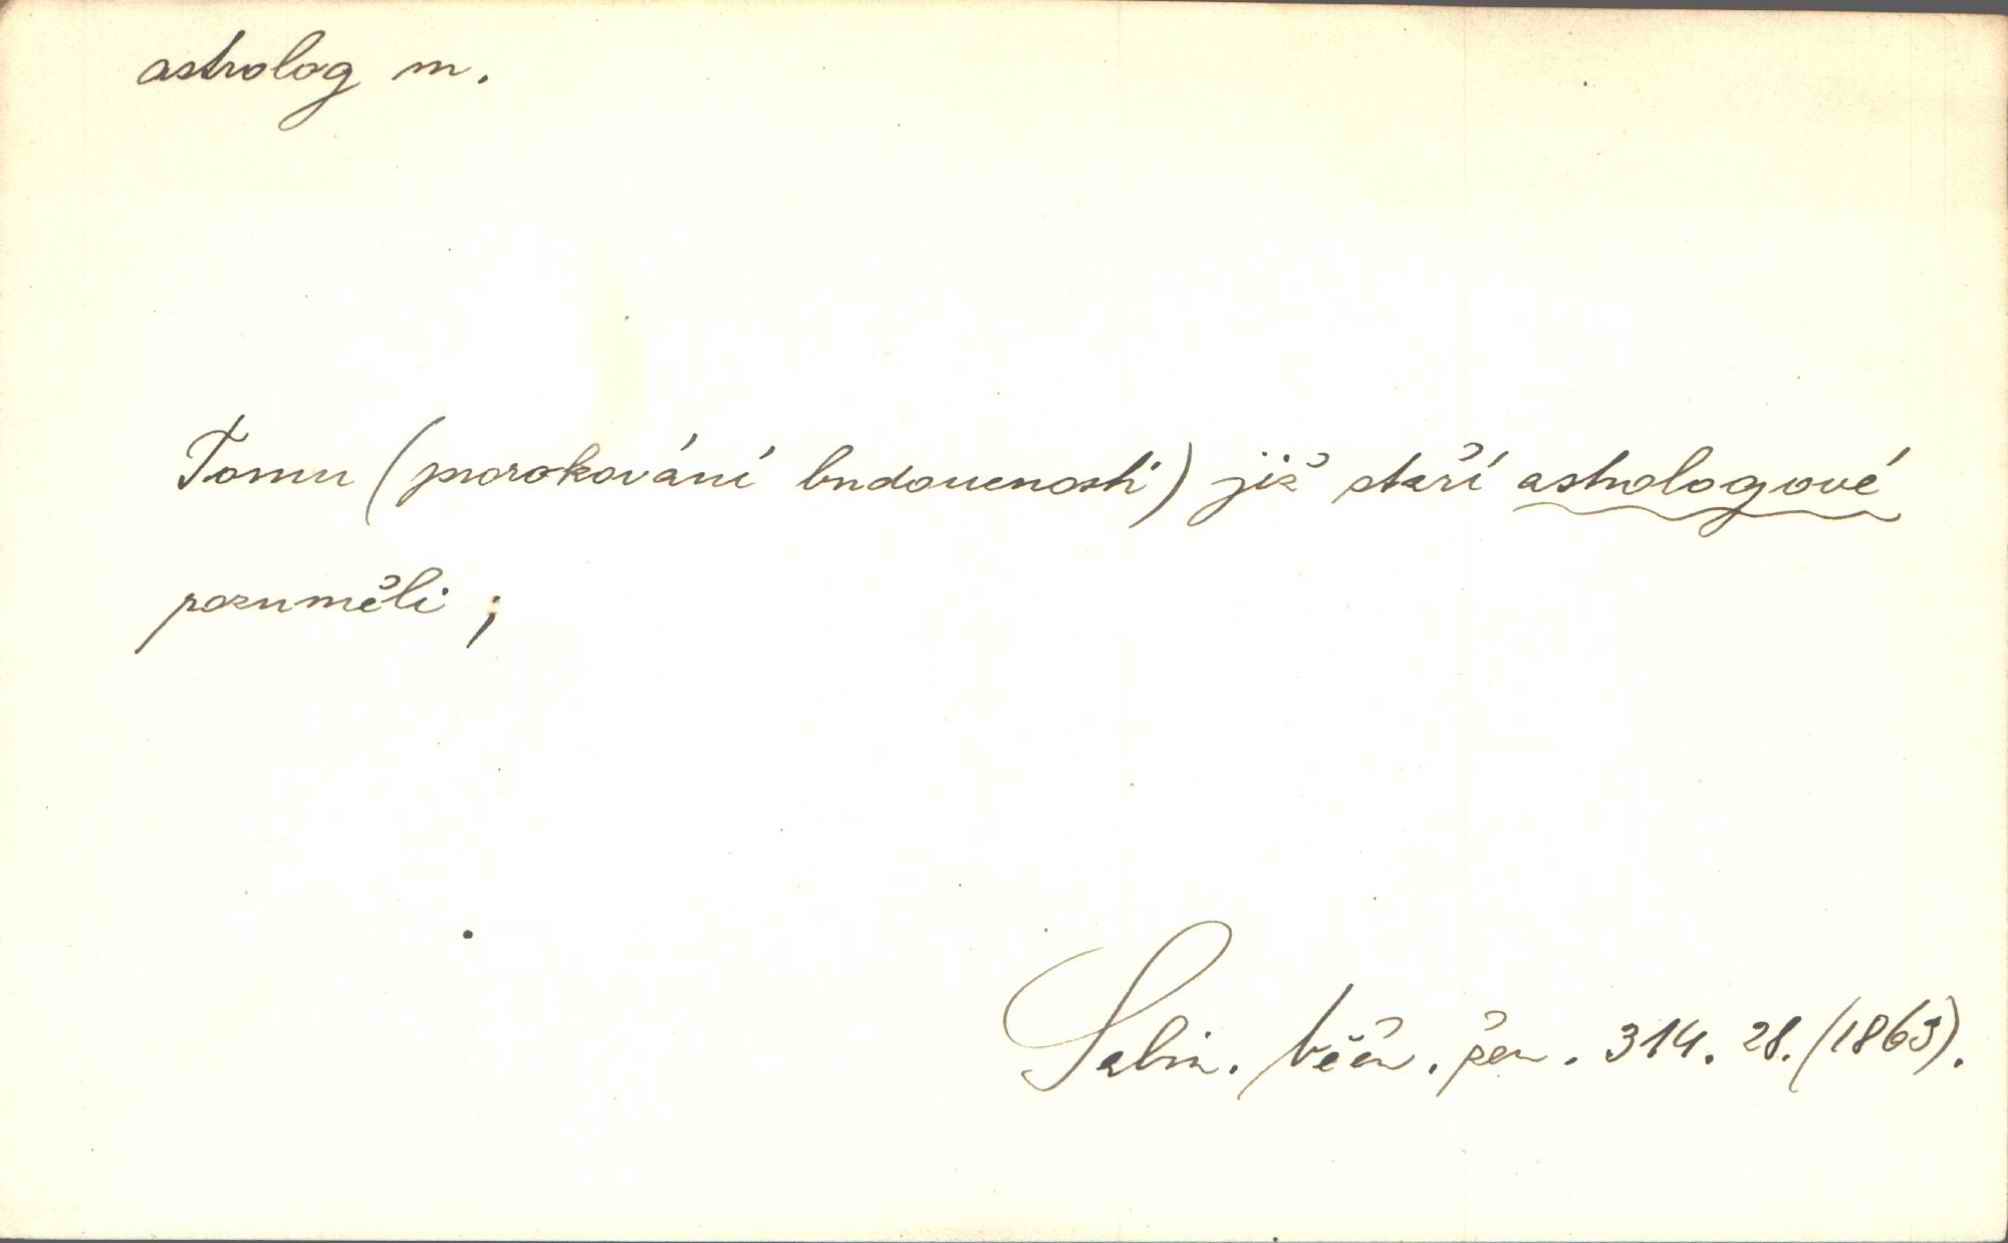 astrolog m.
Tomu (prorokování budoucnosti) již staří astrologové
rozuměli ;
Sabin. Věčn. žen. 314. 28. (1863).